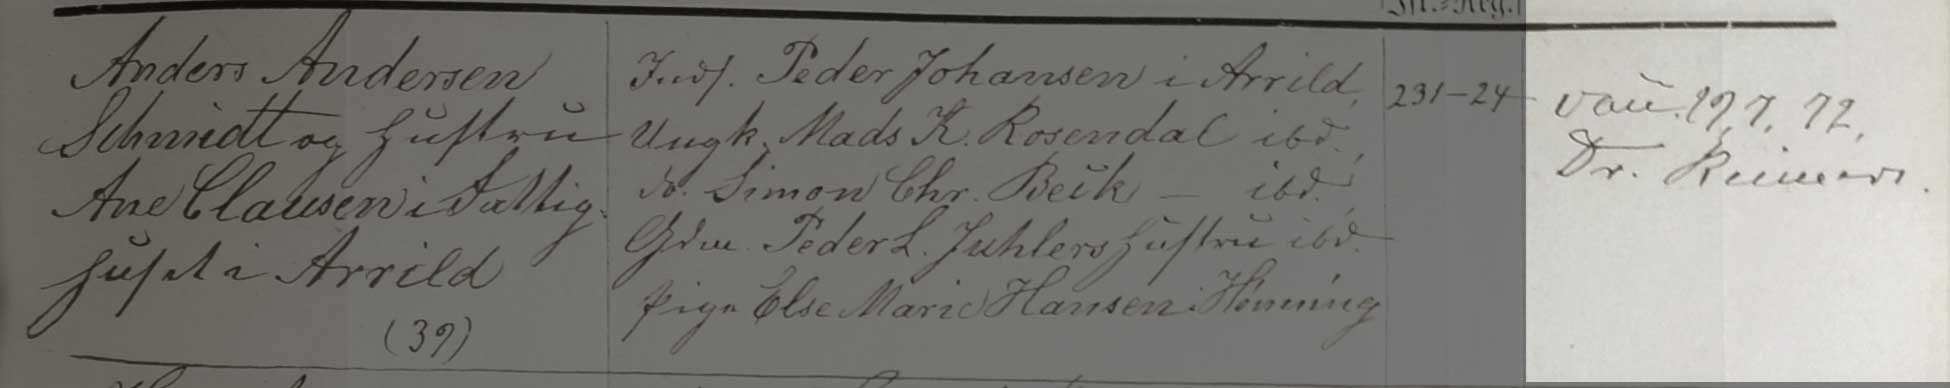 Jst.-Reg.
Anders Andersen
Schmidt og Hustru
Ane Clausen i Fattig-
huset i Arrild
(39)
Inds. Peder Johansen i Arrild,
Ungk. Mads K. Rosendal ibd.,
do. Simon Chr. Beck — ibd.,
Gdm. Peder L. Juhlers Hustru ibd.
Pige Else Marie Hansen i Hönning
231-24
vac. 19,7. 72,
Dr. Reimers.